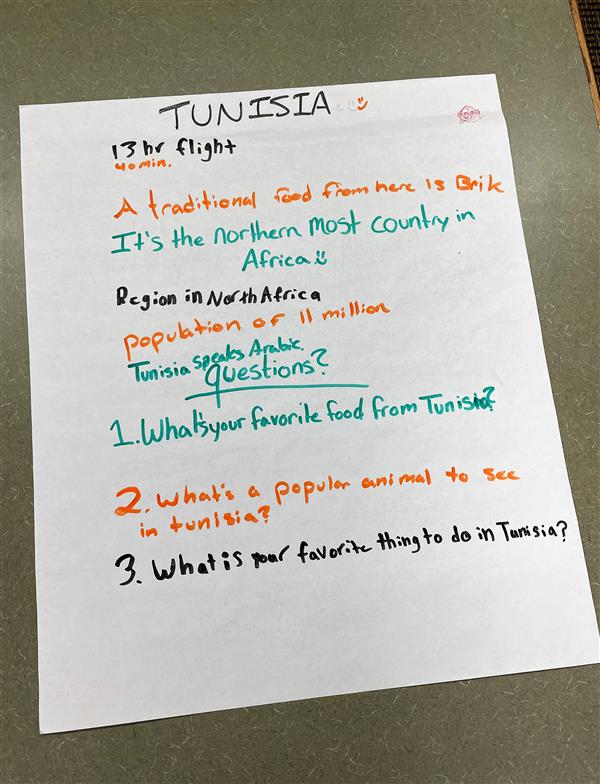 TUNISIA
13 hr flight
40 min.
A traditional food from here is Brik
It's the northern most country in
Africa
Region in North Africa
population of 11 million
Tunisia speaks Arabic.
Questions?
1. What's your favorite food from Tunisia?
2. What's a popular animal to see
in tunisia?
3. What is your favorite thing to do in Tunisia?